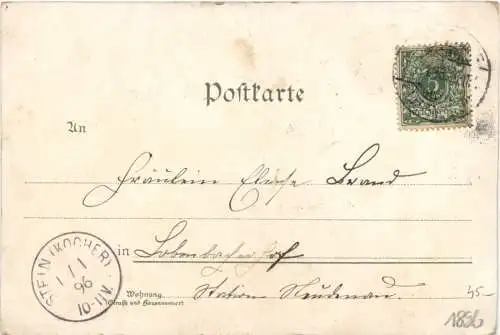 Postkarte
An
Fräulein Eliese Brand
in Lobenbacherhof
Wohnung
(Straße und Hausnummer)
Station Neudenau.
STEIN (KOCHER)
1 1
96
10-11V.
5
45-
1896